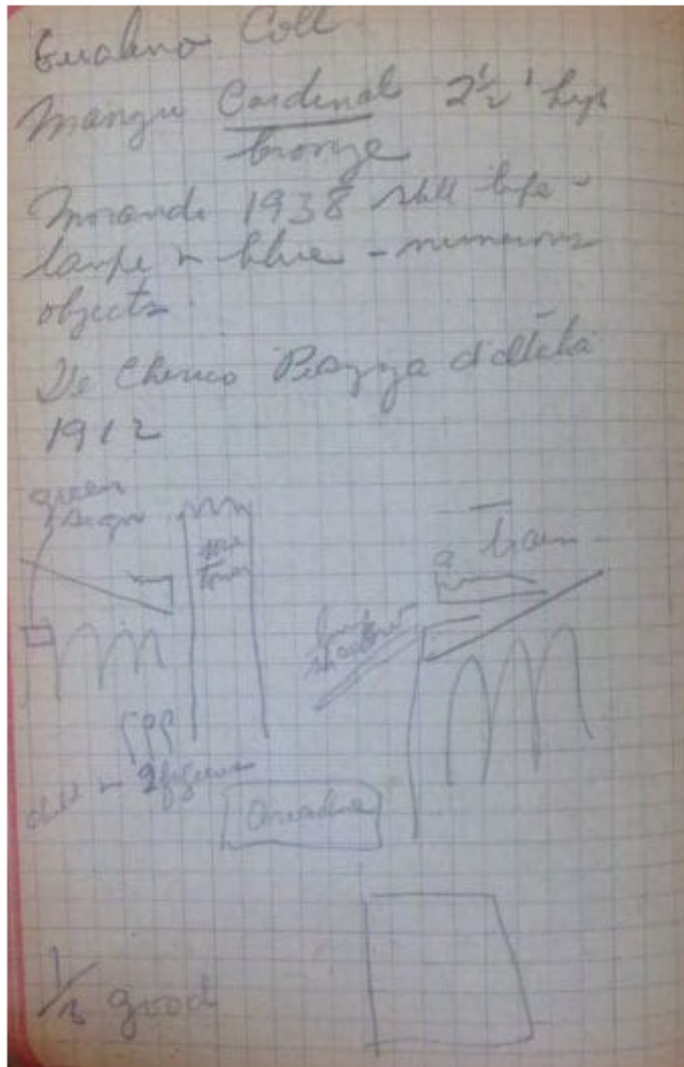 Gualino Coll
Manzu Cardinal 2½' high
bronze
Morandi 1938 still life -
lampe in blue - numerous
objects
De Chirico Piazza d'Italia
1912
green
rose
tower
train
shadow
figures
Ariadne
½ good